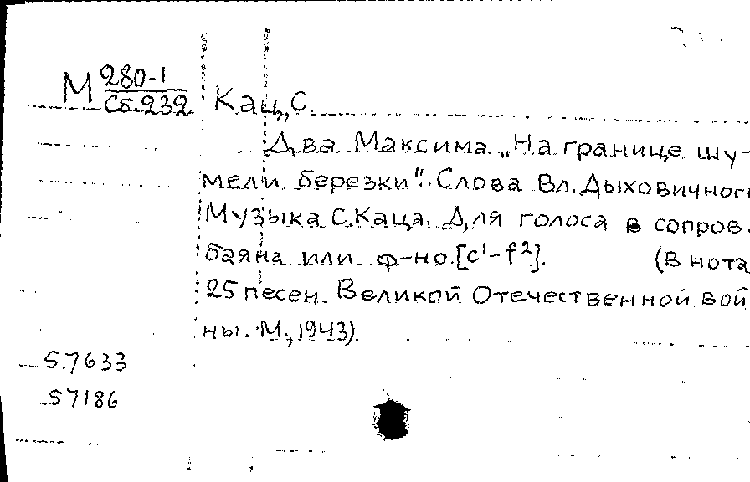 М 280-1
Сб.232
Кац, С.
Два Максима. „На границе шу-
мели березки". Слова Вл. Дыховичног
Музыка С. Каца. Для голоса в сопров.
баяна или ф-но. [c¹-f²]. (В нота
25 песен Великой Отечественной вой
ны. М., 1943).
57633
57186